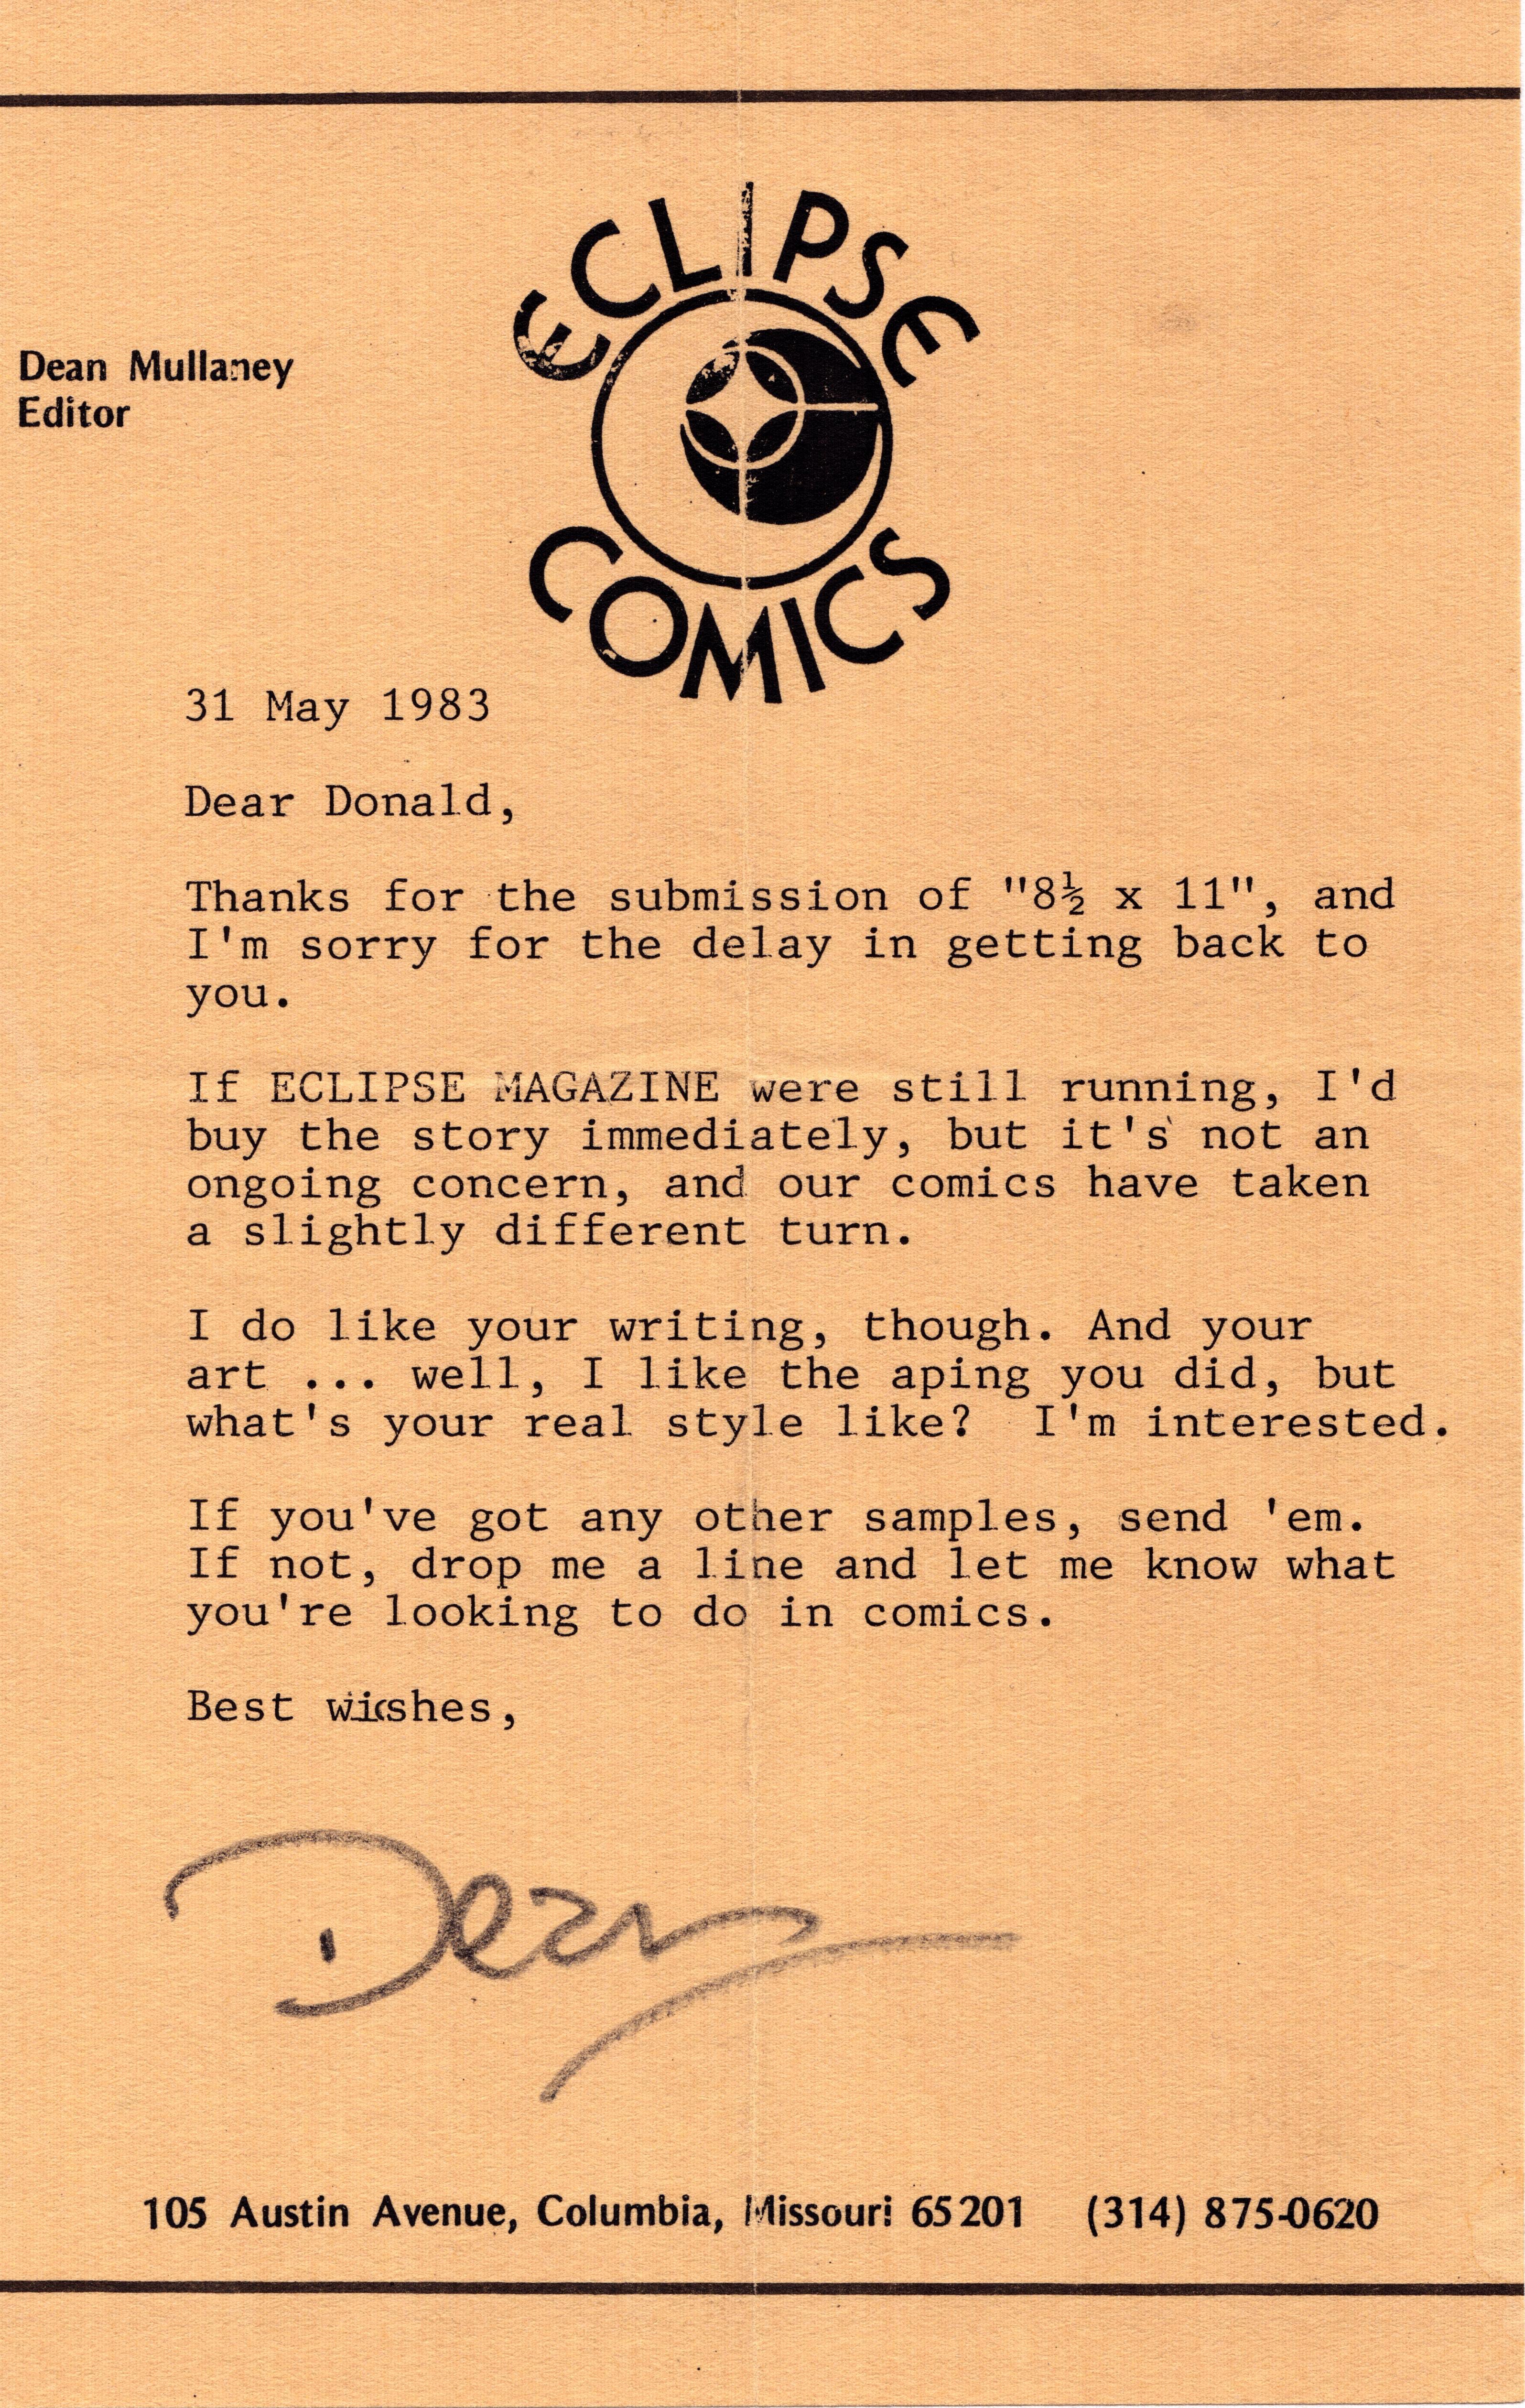 ECLIPSE
COMICS
Dean Mullaney
Editor
31 May 1983
Dear Donald,
Thanks for the submission of "8½ x 11", and
I'm sorry for the delay in getting back to
you.
If ECLIPSE MAGAZINE were still running, I'd
buy the story immediately, but it's not an
ongoing concern, and our comics have taken
a slightly different turn.
I do like your writing, though. And your
art ... well, I like the aping you did, but
what's your real style like?  I'm interested.
If you've got any other samples, send 'em.
If not, drop me a line and let me know what
you're looking to do in comics.
Best wishes,
Dean
105 Austin Avenue, Columbia, Missouri 65201 (314) 875-0620